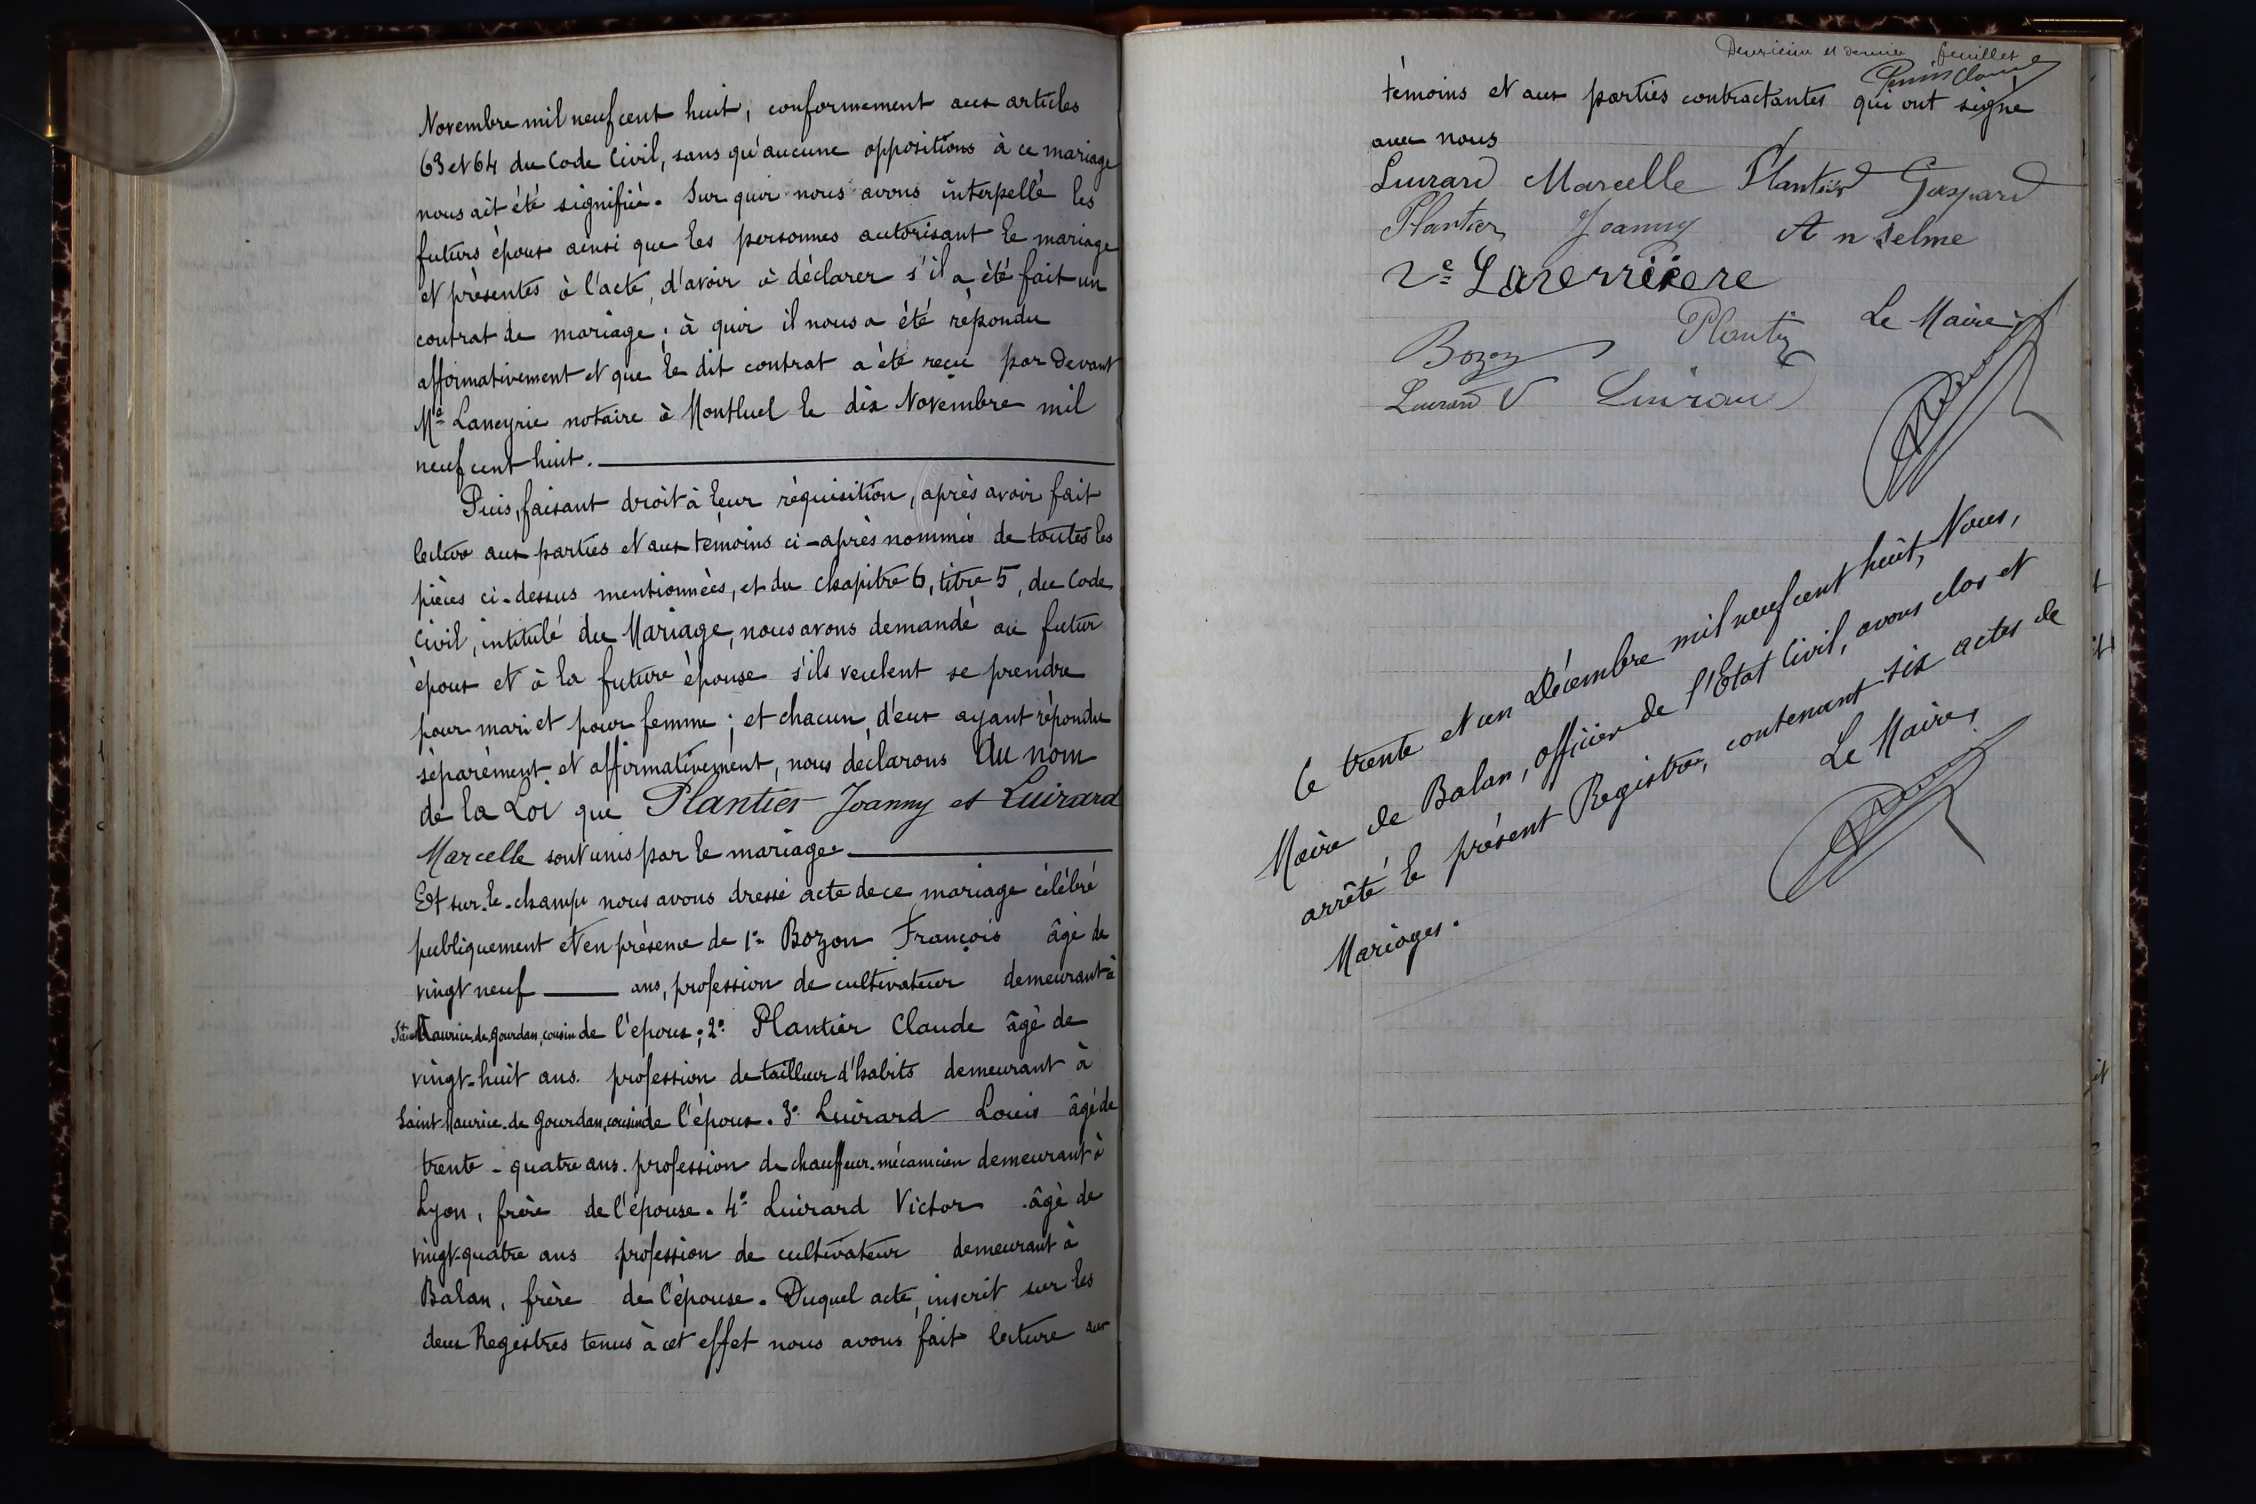 Novembre mil neuf cent huit, conformement aux articles
63 et 64 du Code Civil, sans qu'aucune oppositions à ce mariage
nous ait été signifiée. Sur quoi nous avons interpellé les
futurs époux ainsi que les personnes autorisant le mariage
et présentes à l'acte, d'avoir à déclarer s'il a été fait un
contrat de mariage; à quoi il nous a été répondu
affirmativement et que le dit contrat a été reçu par devant
Me Laneyrie notaire à Montluel le dix Novembre mil
neuf cent huit.
Puis, faisant droit à leur réquisition, après avoir fait
lecture aux parties et aux témoins ci-après nommés de toutes les
pièces ci-dessus mentionnées, et du chapitre 6, titre 5, du Code
Civil, intitulé du Mariage, nous avons demandé au futur
époux et à la future épouse s'ils veulent se prendre
pour mari et pour femme; et chacun d'eux ayant répondu
séparément et affirmativement, nous déclarons Au nom
de la Loi que Plantier Joanny et Luirard
Marcelle sont unis par le mariage.
Et sur-le-champ nous avons dressé acte de ce mariage célébré
publiquement et en présence de 1° Bozon François âgé de
vingt neuf ans, profession de cultivateur demeurant à
Saint Maurice-de-Gourdan, cousin de l'époux; 2° Plantier Claude âgé de
vingt-huit ans. profession de tailleur d'habits demeurant à
Saint-Maurice-de Gourdan, cousin de l'époux. 3° Luirard Louis âgé de
trente-quatre ans. profession de chauffeur-mécanicien demeurant à
Lyon, frère de l'épouse. 4° Luirard Victor âgé de
vingt-quatre ans profession de cultivateur demeurant à
Balan, frère de l'épouse. Duquel acte, inscrit sur les
deux Registres tenus à cet effet nous avons fait lecture aux
Deuxième et dernier feuillet
témoins et aux parties contractantes qui ont signé
avec nous
Luirard Marcelle Plantier Gaspard
Plantier Joanny Anselme
Ve Laverrière
Plantier Le Maire
Bozon
Luirard V Luirard
Ce trente et un Décembre mil neuf cent huit, Nous,
Maire de Balan, officier de l'Etat Civil, avons clos et
arrêté le présent Registre, contenant six actes de
Mariages.
Le Maire,